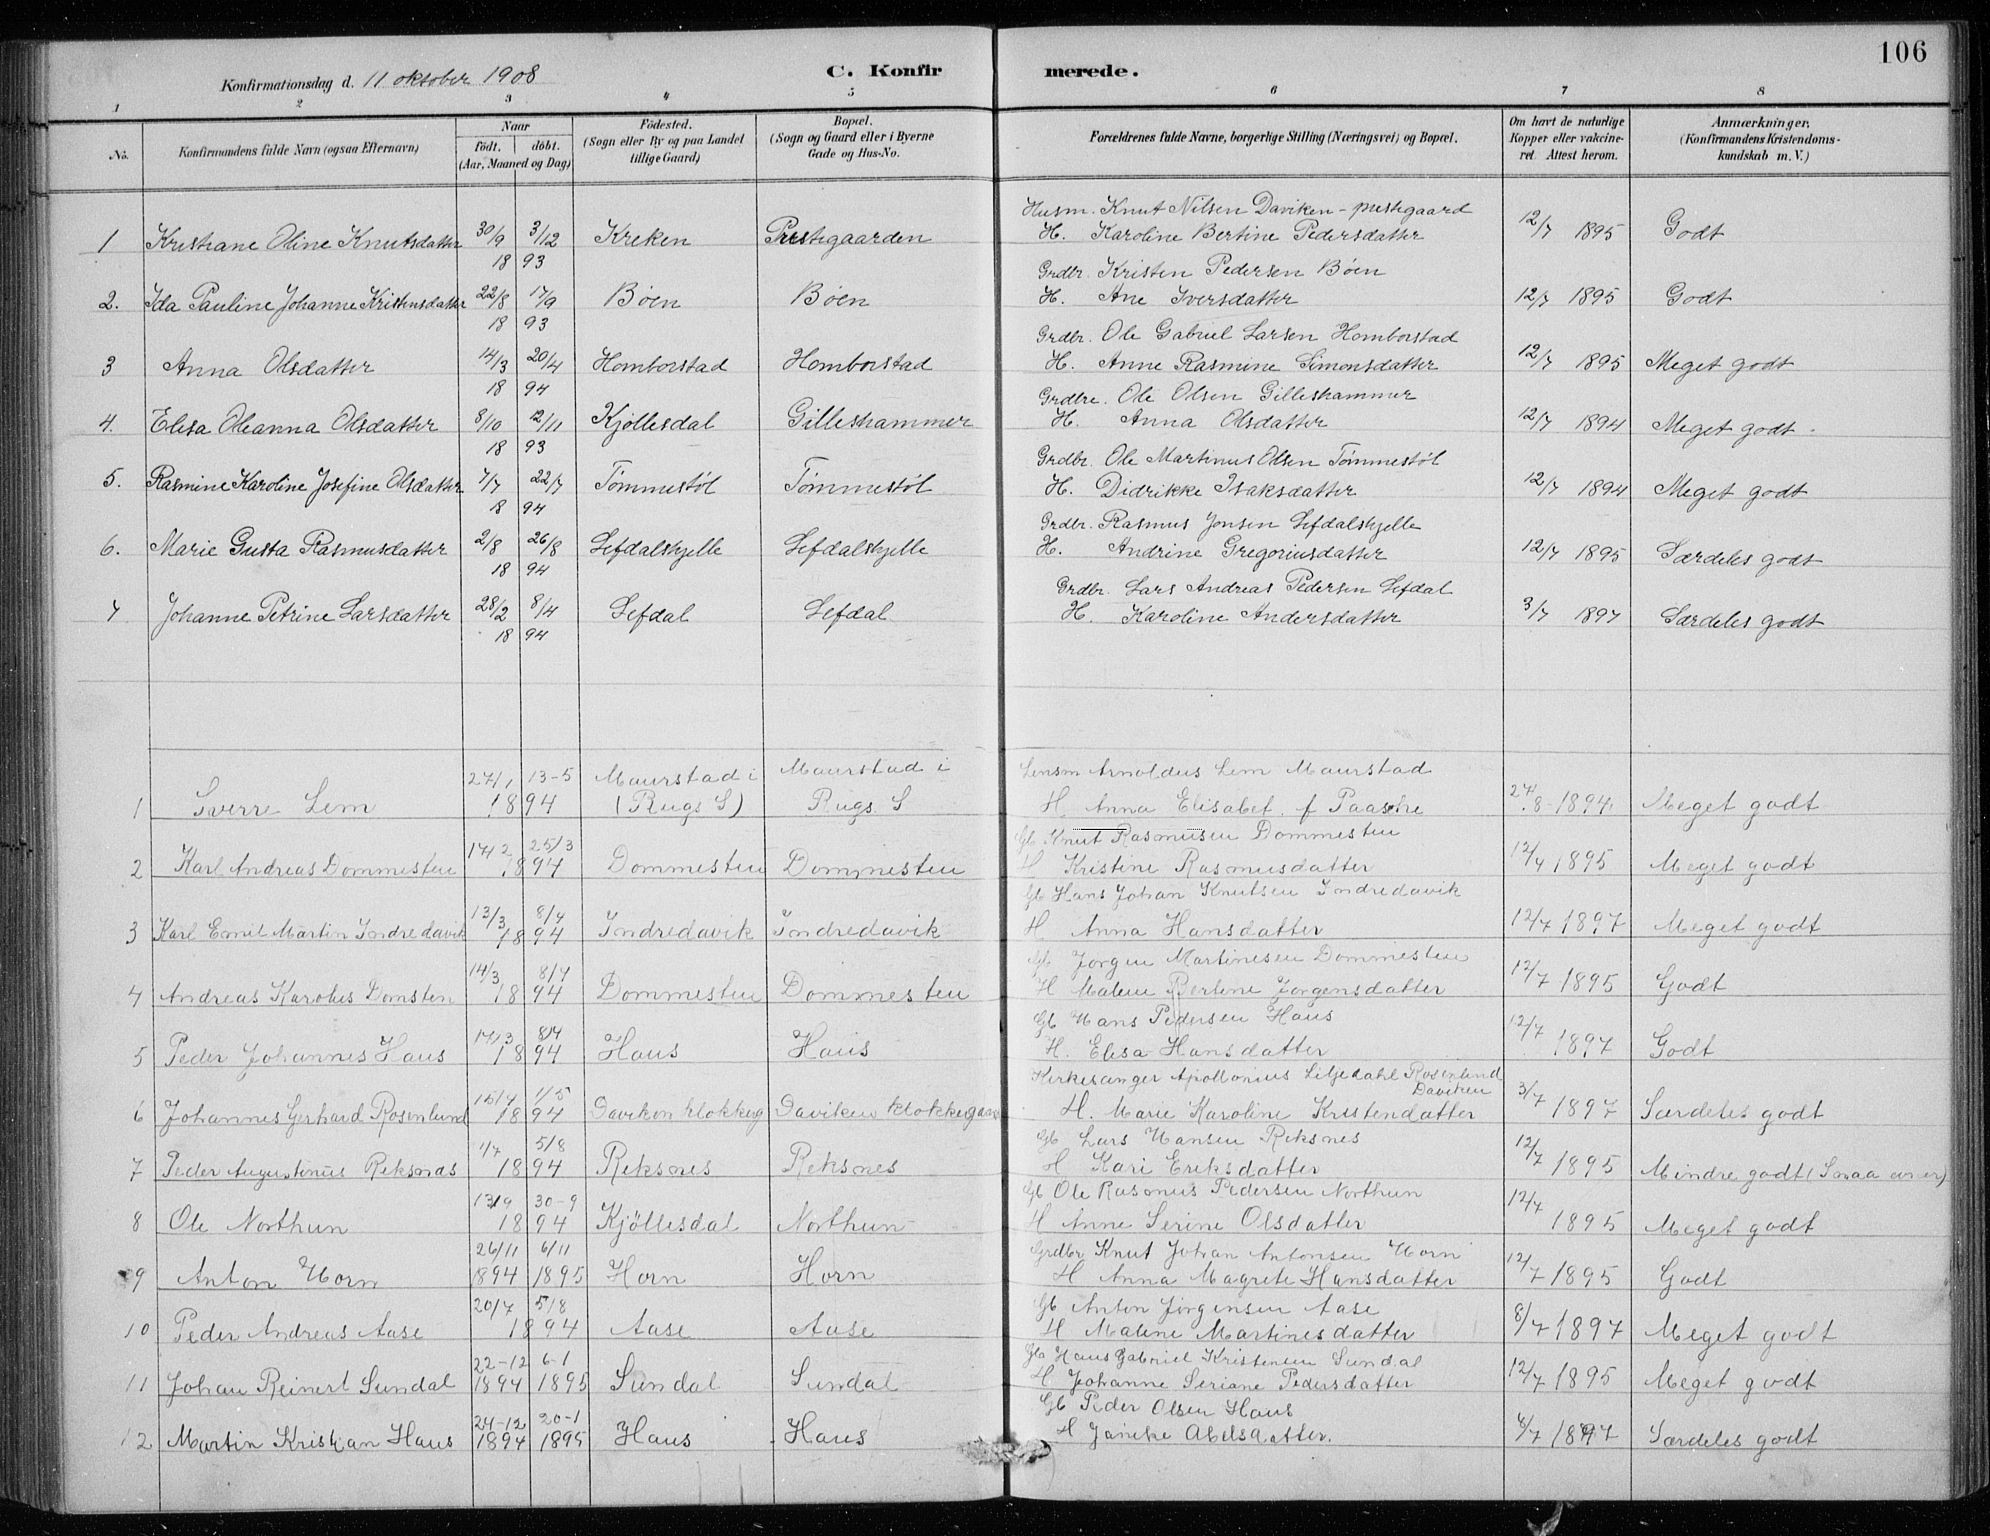 106
Konfirmationsdag d. 11 oktober 1908
C. Konfirmerede.
1 2 3 4 5 6 7 8
No.
Konfirmandens fulde Navn (ogsaa Efternavn)
Naar
födt. döbt.
(Aar, Maaned og Dag)
Födested.
(Sogn eller By og paa Landet
tillige Gaard)
Bopæl.
(Sogn og Gaard eller i Byerne
Gade og Hus-No.
Forældrenes fulde Navne, borgerlige Stilling (Næringsvei) og Bopæl.
Om havt de naturlige
Kopper eller vakcine-
ret. Attest herom.
Anmærkninger.
(Konfirmandens Kristendoms-
kundskab m. V.)
Husm. Knut Nilsen Daviken-prestegaard
1 Kristiane Oline Knutsdatter 30/9 3/12 Kreken Prestegaarden H. Karoline Bertine Pedersdatter 12/7 1895 Godt
18 93
Grdbr. Kristen Pedersen Böen
2. Ida Pauline Johanne Kristensdatter 22/8 17/9 Böen Böen H. Ane Iversdatter 12/7 1895 Godt
18 93
Grdbr. Ole Gabriel Larsen Homborstad
3 Anna Olsdatter 14/3 20/4 Homborstad Homborstad H. Anne Rasmine Simonsdatter 12/7 1895 Meget godt
18 94
Grdbr. Ole Olsen Gilleshammer
4. Elisa Oleanna Olsdatter 8/10 12/11 Kjöllesdal Gilleshammer H. Anna Olsdatter 12/7 1894 Meget godt
18 93
Grdbr. Ole Martinus Olsen Tömmestöl
5. Rasmine Karoline Josefine Olsdatter 7/7 22/7 Tömmestöl Tömmestöl H. Didrikke Isaksdatter 12/7 1894 Meget godt
18 94
Grdbr. Rasmus Jonsen Lefdalskjelle
6. Marie Gusta Rasmusdatter 2/8 26/8 Lefdalskjelle Lefdalskjelle H. Andrine Gregoriusdatter 12/7 1895 Særdeles godt
18 94
Grdbr. Lars Andreas Pedersen Lefdal
7 Johanne Petrine Larsdatter 28/2 8/4 Lefdal Lefdal H. Karoline Andersdatter 3/7 1897 Særdeles godt
18 94
27/1 13-5 Maurstad i Maurstad i Lensm Arnoldus Lem Maurstad
1 Sverre Lem 1894 (Rugs S) Rugs. S H. Anna Elisabet f Paasche 24/8-1894 Meget godt
17/2 25/3 Gb Knut Rasmusen Dommesten
2 Karl Andreas Dommesten 1894 Dommesten Dommesten H Kristine Rasmusdatter 12/7 1895 Meget godt
13/3 8/4 Gb Hans Johan Knutsen Indredavik
3 Karl Emil Martin Indredavik 1894 Indredavik Indredavik H Anna Hansdatter 12/7 1897 Meget godt
14/3 8/4 Gb Jorgen Martinesen Dommesten
4 Andreas Karolus Domsten 1894 Dommesten Dommesten H Malene Bertine Jorgensdatter 12/7 1895 Godt
17/3 8/4 Gb Hans Pedersen Haus
5 Peder Johannes Haus 1894 Haus Haus H. Elisa Hansdatter 12/7 1897 Godt
15/4 1/5 Kirkesanger Apollonius Liljedahl Rosenlund Daviken
6 Johannes Gerhard Rosenlund 1894 Daviken klokkerg Daviken klokkergaard H. Marie Karoline Kristendatter 3/7 1897 Særdeles godt
1/7 5/8 Gb Lars Hansen Reksnes
7 Peder Augustinus Reksnæs 1894 Reksnes Reksnes H Kari Eriksdatter 12/7 1895 Mindre godt (Smaa evner)
13/9 30-9 Gb Ole Rasmus Pedersen Northun
8 Ole Northun 1894 Kjöllesdal Northun H Anne Serine Olsdatter 12/7 1895 Meget godt
26/11 6/11 Grdbr Knut Johan Antonsen Horn
9 Anton Horn 1894 1895 Horn Horn H Anna Magrete Hansdatter 12/7 1895 Godt
20/7 5/8 Gb Anton Jörgensen Aase
10 Peder Andreas Aase 1894 Aase Aase H Malene Martinesdatter 8/7 1897 Meget godt
22-12 6-1 Gb Hans Gabriel Kristensen Sundal
11 Johan Reinert Sundal 1894 1895 Sundal Sundal H Johanne Seriane Pedersdatter 12/7 1895 Meget godt
24-12 20-1 Gb Peder Olsen Haus
12 Martin Kristian Haus 1894 1895 Haus Haus H Janike Abelsdatter. 6/7 1897 Særdeles godt